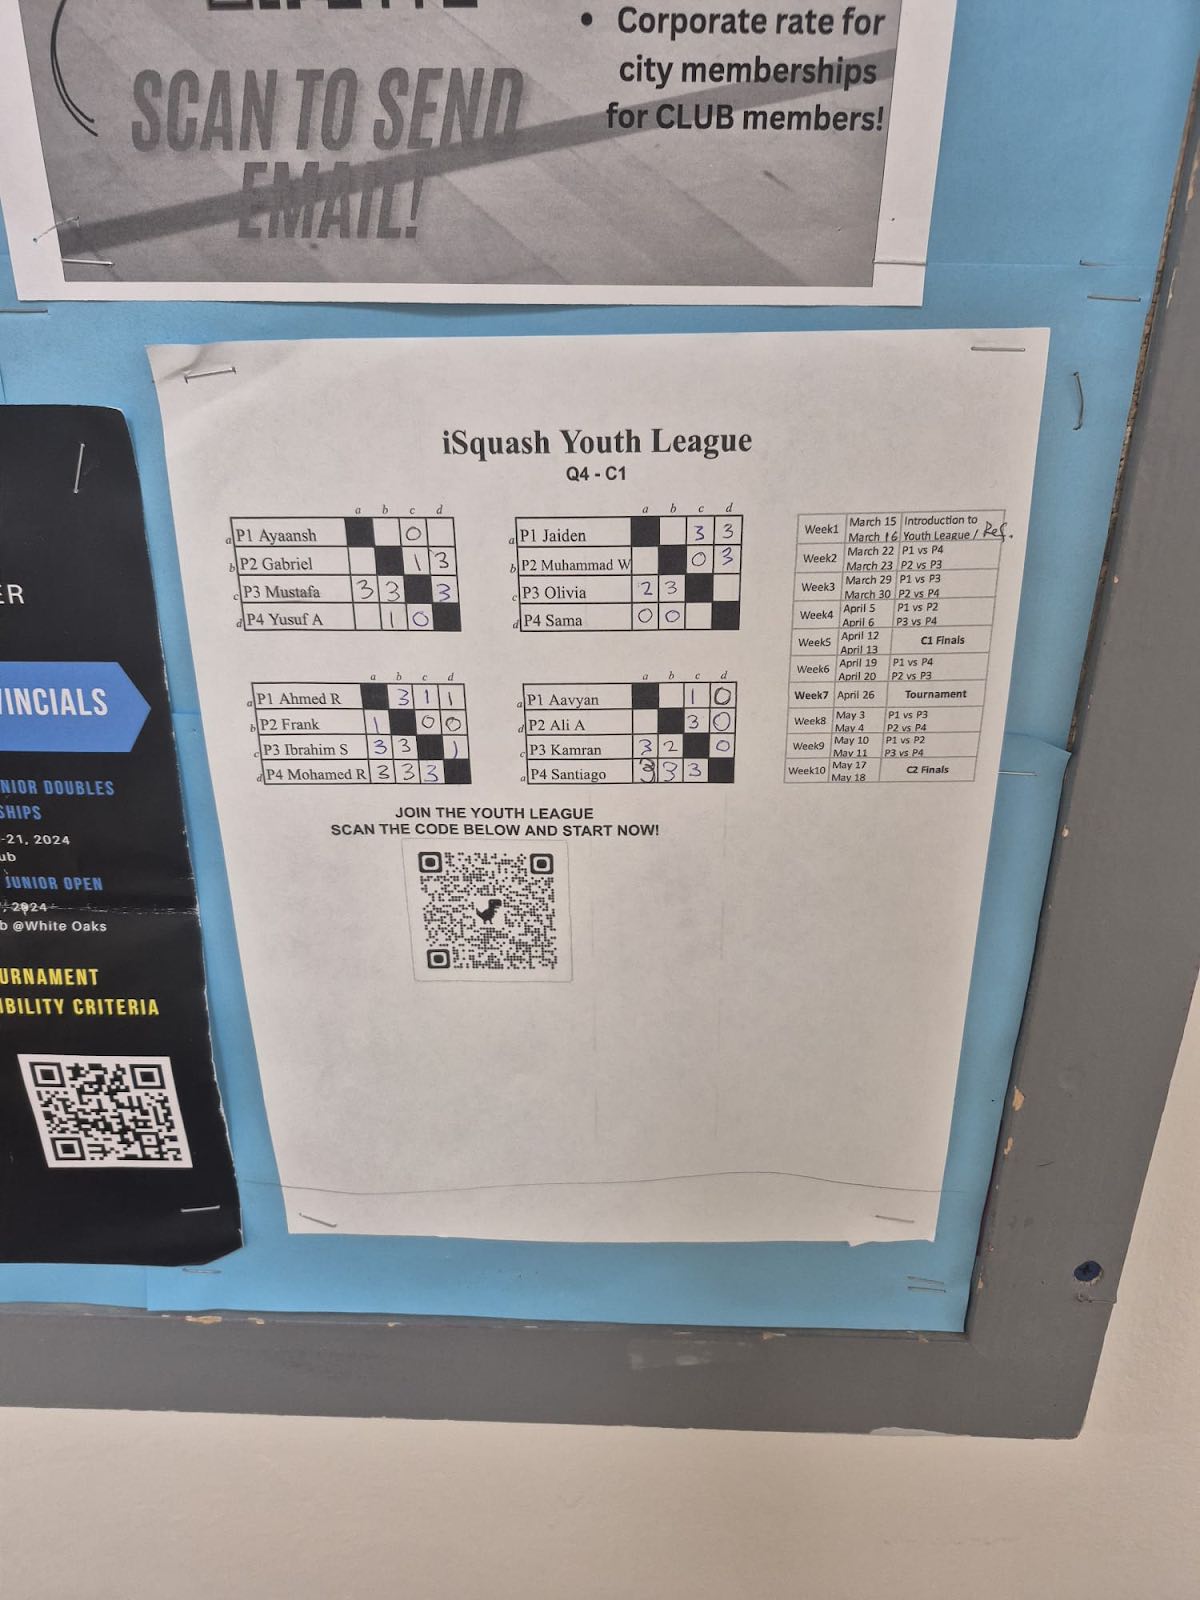 SCAN TO SEND
EMAIL!
• Corporate rate for
city memberships
for CLUB members!
ER
VINCIALS
NIOR DOUBLES
SHIPS
-21, 2024
ub
JUNIOR OPEN
, 2024
b @White Oaks
URNAMENT
IBILITY CRITERIA
iSquash Youth League
Q4 - C1
a b c d
a P1 Ayaansh 0
b P2 Gabriel 1 3
c P3 Mustafa 3 3 3
d P4 Yusuf A 1 0
a b c d
a P1 Jaiden 3 3
b P2 Muhammad W 0 3
c P3 Olivia 2 3
d P4 Sama 0 0
a b c d
a P1 Ahmed R 3 1 1
b P2 Frank 1 0 0
c P3 Ibrahim S 3 3 1
d P4 Mohamed R 3 3 3
a b c d
a P1 Aavyan 1 0
d P2 Ali A 3 0
c P3 Kamran 3 2 0
a P4 Santiago 3 3 3
Week1 March 15 Introduction to
March 16 Youth League / Ref.
Week2 March 22 P1 vs P4
March 23 P2 vs P3
Week3 March 29 P1 vs P3
March 30 P2 vs P4
Week4 April 5 P1 vs P2
April 6 P3 vs P4
Week5 April 12 C1 Finals
April 13
Week6 April 19 P1 vs P4
April 20 P2 vs P3
Week7 April 26 Tournament
Week8 May 3 P1 vs P3
May 4 P2 vs P4
Week9 May 10 P1 vs P2
May 11 P3 vs P4
Week10 May 17 C2 Finals
May 18
JOIN THE YOUTH LEAGUE
SCAN THE CODE BELOW AND START NOW!